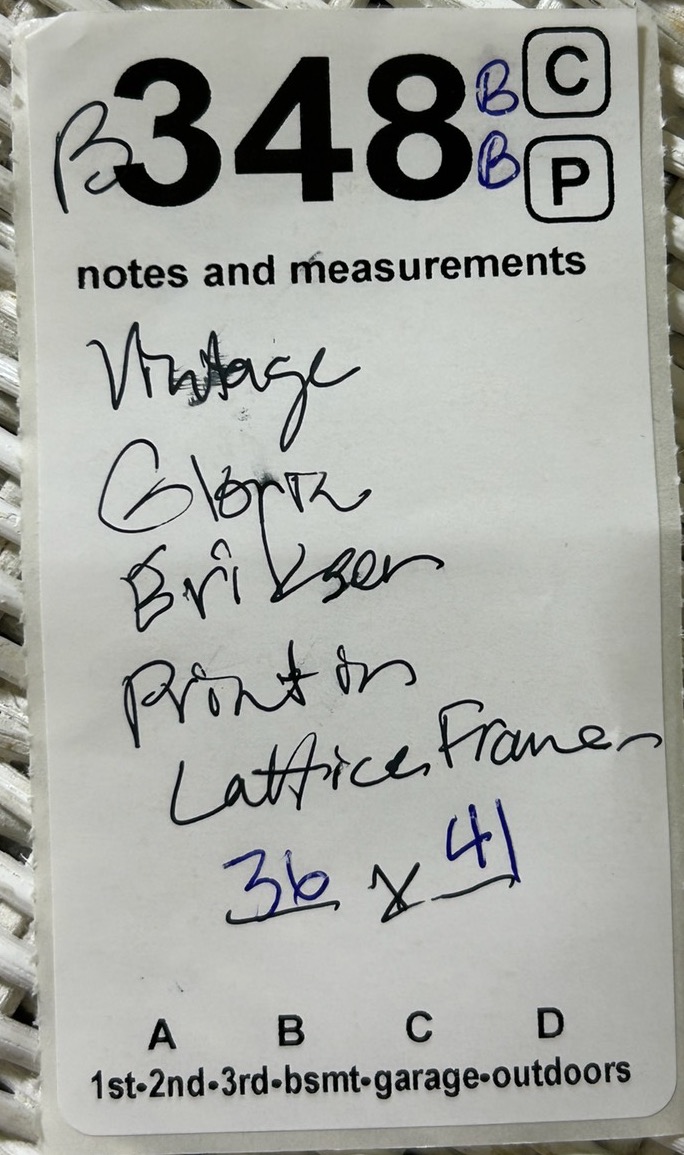 B 348 B C
B P
notes and measurements
Vintage
Gloria
Eriksen
Print in
Lattice Frame
36 x 41
A B C D
1st-2nd-3rd-bsmt-garage-outdoors